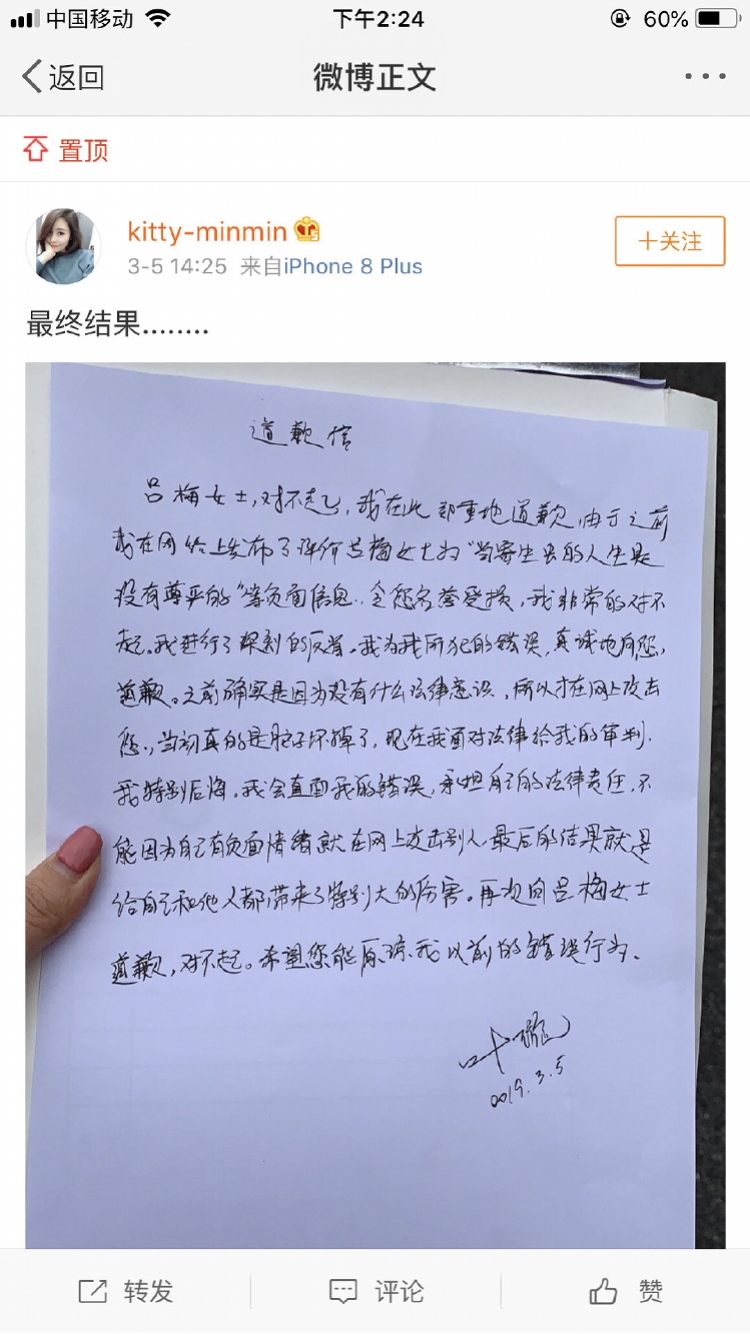 中国移动 下午2:24 60%
返回 微博正文
置顶
kitty-minmin
+关注
3-5 14:25 来自iPhone 8 Plus
最终结果........
道歉信
吕梅女士,对不起,我在此郑重地道歉,由于之前
我在网络上发布了评价吕梅女士为“当寄生虫的人生是
没有尊严的“等负面信息.令您名誉受损,我非常的对不
起。我进行了深刻的反省。我为我所犯的错误,真诚地向您,
道歉。之前确实是因为没有什么法律意识,所以才在网上攻击
您.,当初真的是脑子坏掉了,现在我面对法律给我的审判.
我特别后悔。我会直面我的错误,承担自己的法律责任,不
能因为自己有负面情绪就在网上攻击别人,最后的结果就是
给自己和他人都带来了特别大的伤害。再次向吕梅女士
道歉,对不起。希望您能原谅我以前的错误行为.
叶璇
2019.3.5
转发 评论 赞